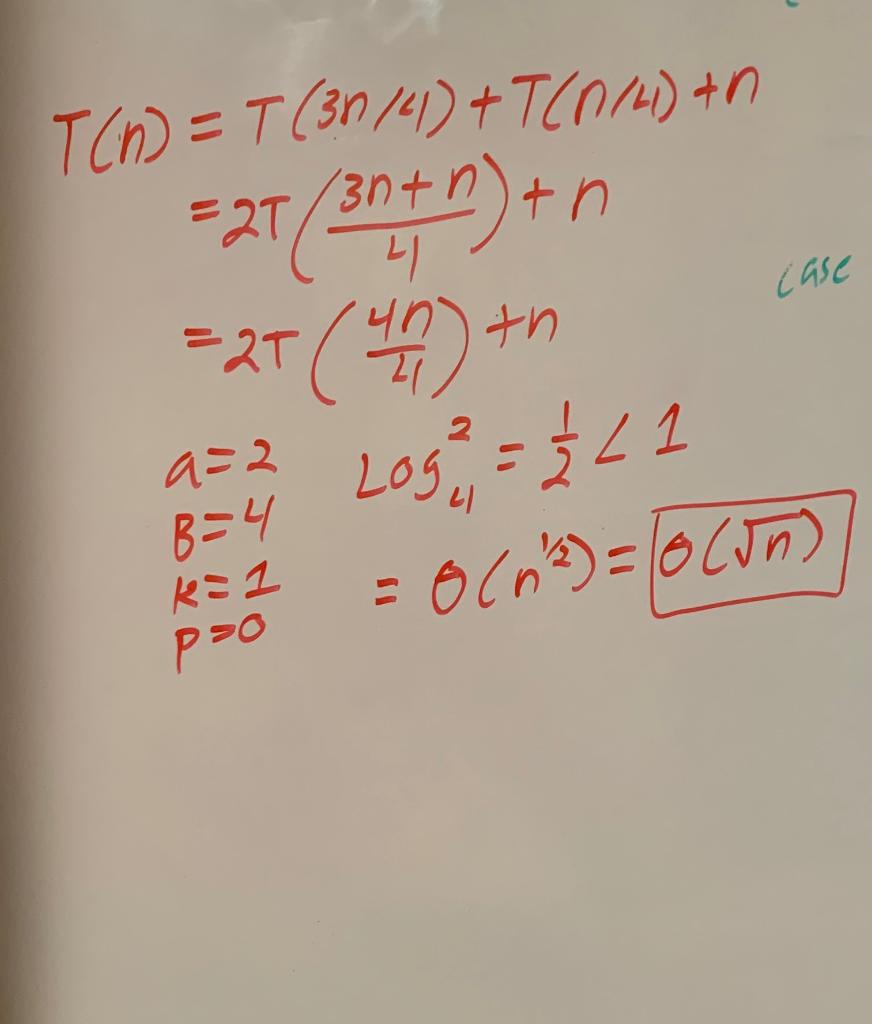 T(n) = T(3n/4) + T(n/4) + n
= 2T(3n+n/4) + n
case
= 2T(4n/4) + n
a=2 Log₄² = 1/2 < 1
B=4
k=1 = θ(n^1/2) = θ(√n)
p=0